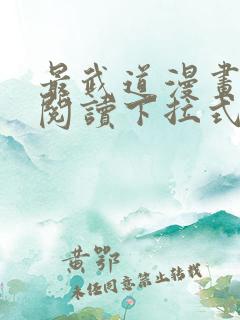 最武道漫畫
閱讀下拉式
黄鄂
未经同意禁止转载